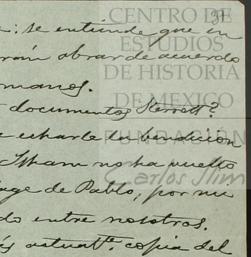 31
CENTRO DE
ESTUDIOS
DE HISTORIA
DE MEXICO
FUNDACIÓN
Carlos Slim
: se entiende que en
rán obrar de acuerdo
manos.
documentos Sterrett?
echarle la bendicion
Isham no ha vuelto
age de Pablo, por mi
do entre nosotros.
és actualte. copia del